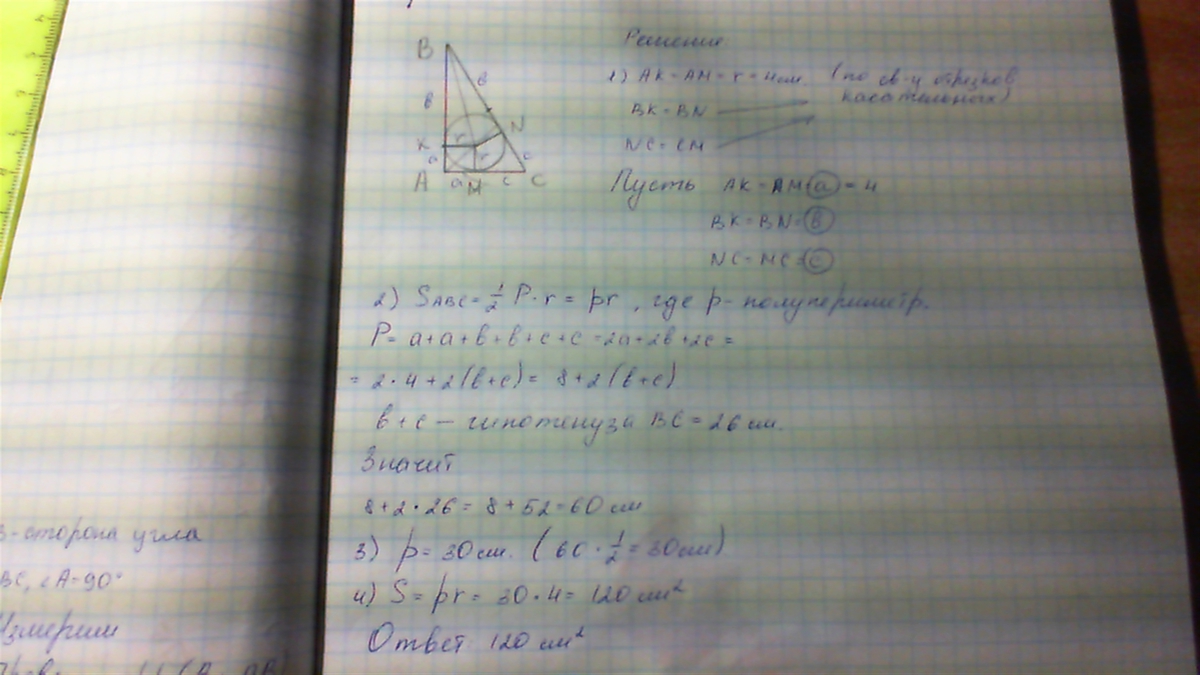 Решение
B
в
в
1) AK = AM = r = 4 см. (по св-у отрезков
касательных)
BK = BN
N
K
r
NC = CM
a
r
c
A
a
M
c
C
Пусть AK = AM = a = 4
BK = BN = в
NC = MC = c
2) SABC = 1/2 P · r = pr, где p - полупериметр.
P = a + a + в + в + c + c = 2a + 2в + 2c =
= 2 · 4 + 2(в + c) = 8 + 2(в + c)
в + c — гипотенуза BC = 26 см.
Значит
8 + 2 · 26 = 8 + 52 = 60 см
3) p = 30 см. (60 · 1/2 = 30 см)
4) S = pr = 30 · 4 = 120 см²
Ответ 120 см²
-сторона угла
BC, ∠A = 90°
Измерим